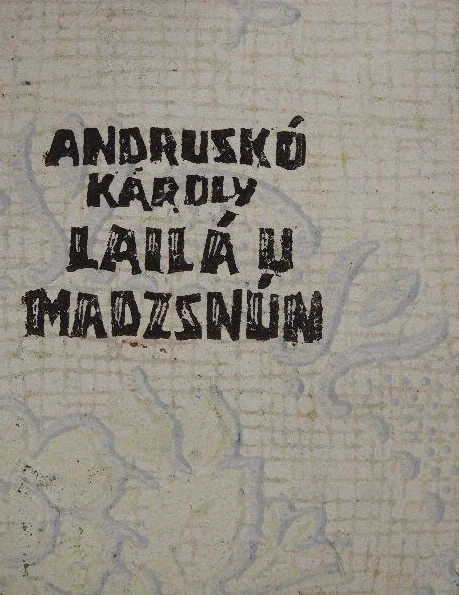 ANDRUSKÓ
KÁROLY
LAILÁ U
MADZSNÚN